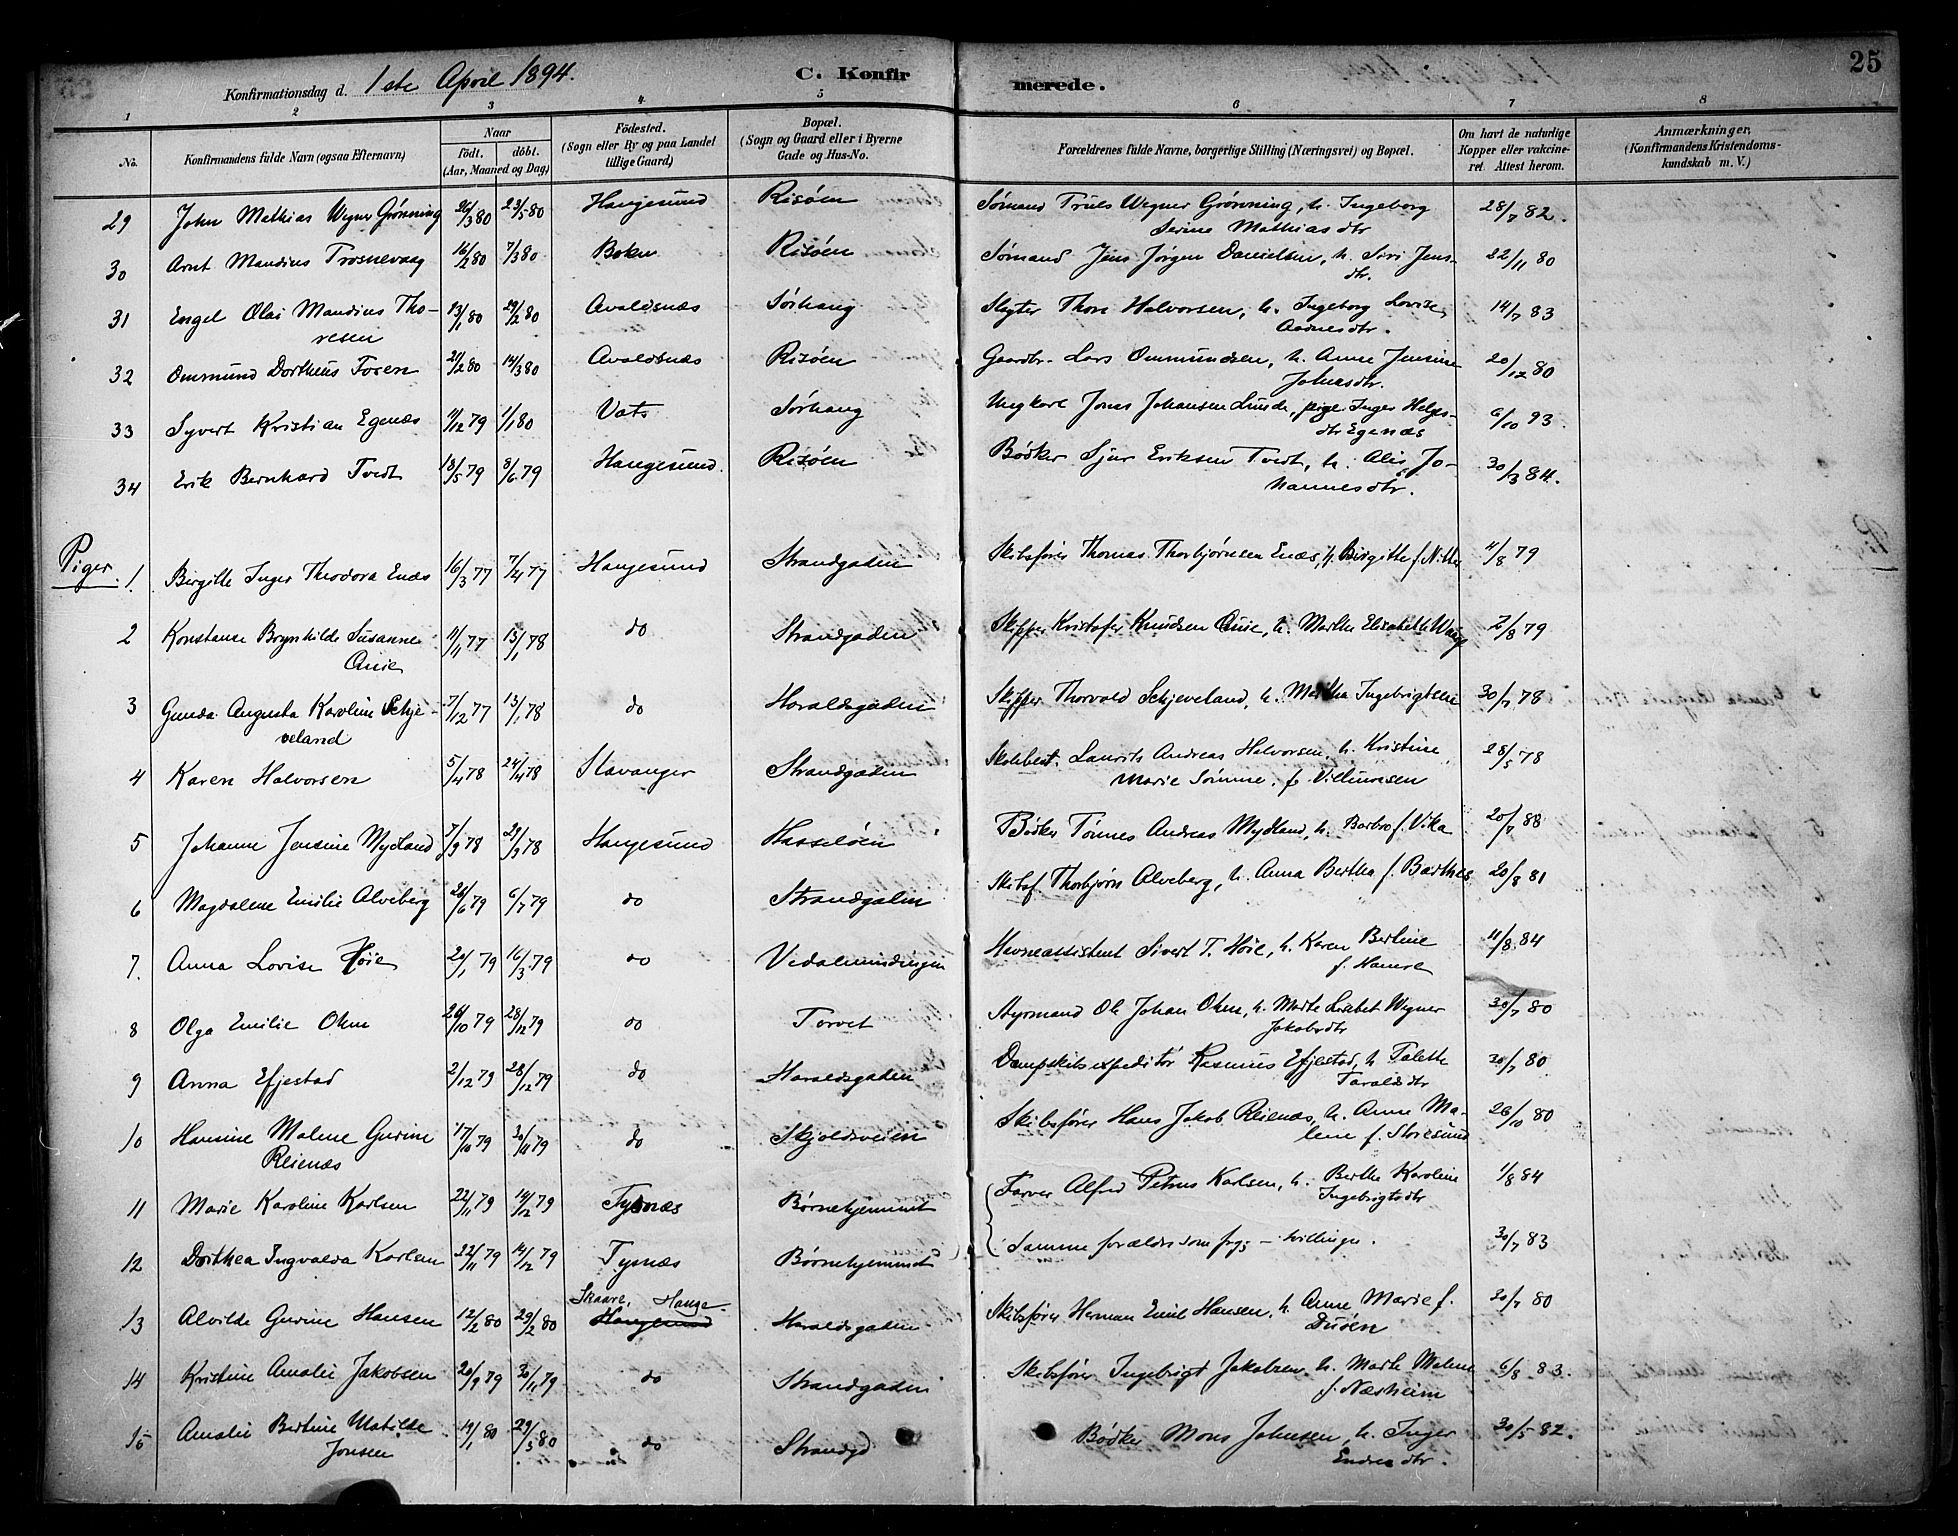 Konfirmationsdag d. 1ste April 1894. C. Konfirmerede. 25
1 2 3 4 5 6 7 8
No. Konfirmandens fulde Navn (ogsaa Efternavn) Naar födt. döbt. (Aar, Maaned og Dag) Födested. (Sogn eller By og paa Landet tillige Gaard) Bopæl. (Sogn og Gaard eller i Byerne Gade og Hus-No. Forældrenes fulde Navne, borgerlige Stilling (Næringsvei) og Bopæl. Om havt de naturlige Kopper eller vakcineret. Attest herom. Anmærkninger. (Konfirmandens Kristendomskundskab m. V.)
29 John Mathias Wegner Grønning 26/3 80 23/5 80 Haugesund Risøen Sømand Truls Wegner Grønning, h. Ingeborg Serine Mathiasdtr 28/7 82.
30 Arnt Mandius Trosnevaag 16/2 80 7/3 80 Bokn Risøen Sømand Jens Jørgen Danielsen, h. Siri Jensdtr. 22/11 80
31 Engel Olai Mandius Thoresen 13/1 80 29/2 80 Avaldsnæs Sørhaug Slagter Thore Halvorsen, h. Ingeborg Lovise Aadnesdtr. 14/7 83
32 Ommund Dortheus Fosen 21/2 80 14/3 80 Avaldsnæs Risøen Gaardbr. Lars Ommundsen, h. Anne Jensine Johnsdtr. 20/12 80
33 Syvert Kristian Egenæs 11/12 79 1/1 80 Vats Sørhaug Ungkarl Jonas Johansen Lunde, pige Inger Helgesdtr Egenæs 6/10 93
34 Erik Bernhard Tvedt 18/5 79 8/6 79 Haugesund. Risøen Bødker Sjur Eriksen Tvedt, h. Alis Johannesdtr. 30/3 84.
Piger.
1 Birgitte Inger Theodora Enæs 16/3 77 7/4 77 Haugesund Strandgaden Skibsfører Thomas Thorbjørnsen Enæs, h. Birgitte f. 4/8 79
2 Konstanse Brynhilde Susanne Quie 11/11 77 13/1 78 do Strandgaden Skipper Kristofer Knudsen Quie, h. Marthe Elisabeth 2/8 79
3 Gunda Augusta Karoline Schjeveland 7/12 77 13/1 78 do Haraldsgaden Skipper Thorvald Schjeveland, h. Martha Ingebrigtsen 30/7 78
4 Karen Halvorsen 5/4 78 24/4 78 Stavanger Strandgaden Skolebest. Laurits Andreas Halvorsen, h. Kristine Marie Sømme, f. Villumsen 28/5 78
5 Johanne Jensine Mydland 7/9 78 29/9 78 Haugesund Hasseløen Bødker Tønnes Andreas Mydland, h. Barbro f. Vika 20/7 88
6 Magdalene Emilie Alveberg 26/6 79 6/7 79 do Strandgaden Skibsf. Thorbjørn Alveberg, h. Anna Bertha f. Barthes 20/8 81
7. Anna Lovise Høie 20/1 79 16/3 79 do Havneassistent Sivert T. Høie, h. Karen Bertine f. Hamre 11/8 84
8 Olga Emilie Ohm 26/10 79 28/12 79 do Torvet Styrmand Ole Johan Ohm, h. Marte Lisabet Wegner Jakobsdtr 30/7 80
9 Anna Efjestad 2/12 79 28/12 79 do Haraldsgaden Dampskibsexpeditør Rasmus Efjestad, h. Talette Taraldsdtr 30/7 80
10 Hansine Malene Gurine Reienæs 17/10 79 30/11 79 do Skjoldsveien Skibsfører Hans Jakob Reienæs, h. Anne Malene f. Storesund 26/10 80
11 Marie Karoline Karlsen 22/11 79 14/12 79 Tysnæs Børnehjemmet Farver Alfred Petrus Karlsen, h. Berthe Karoline Ingebrigtsdtr 1/8 84
12 Dorthea Ingvalda Karlsen 22/11 79 14/12 79 Tysnæs Børnehjemmet Samme forældre som frg; - tvillinger. 30/7 83
13 Alvilde Gurine Hansen 12/2 80 29/2 80 Skaare, Hauge- Haugesund Haraldsgaden Skibsfører Herman Emil Hansen, h. Anne Marie f. Dusøen 20/7 80
14 Kristine Amalie Jakobsen 20/9 79 30/11 79 do Strandgaden Skibsfører Ingebrigt Jakobsen, h. Marthe Malene f. Næsheim 6/8 83.
15 Amalie Bertine Matilde Jonsen 19/1 80 29/3 80 do Strandgd Bødker Mons Johnsen, h. Inger Endresdtr. 30/5 82.